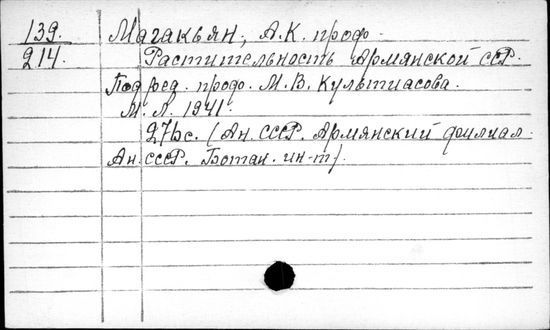 139. Магакьян, А.К. проф.
214. Растительность Армянской ССР.
Под ред. проф. М.В. Культиасова.
М. Л. 1941.
276с. (Ан. СССР. Армянский филиал
Ан СССР. Ботан. ин-т).